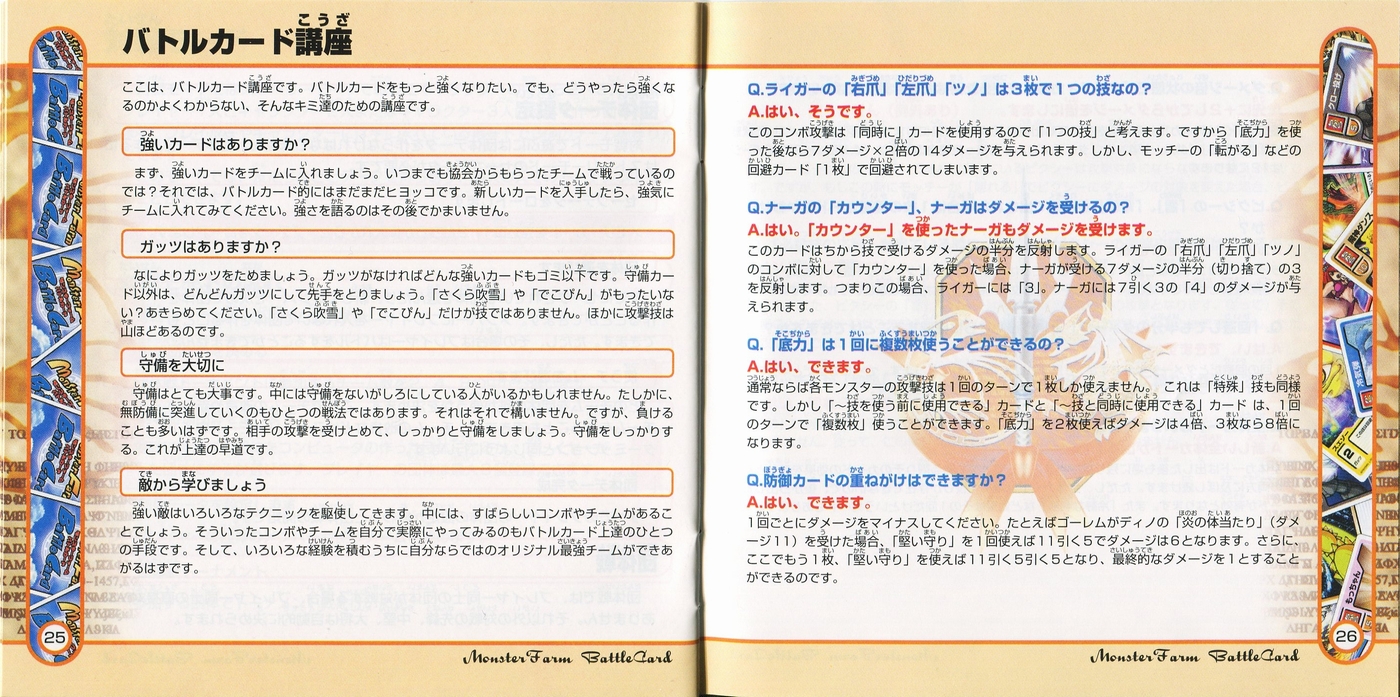 バトルカード講座
ここは、バトルカード講座です。バトルカードをもっと強くなりたい。でも、どうやったら強くな
るのかよくわからない、そんなキミ達のための講座です。
強いカードはありますか？
まず、強いカードをチームに入れましょう。いつまでも協会からもらったチームで戦っているの
では？それでは、バトルカード的にはまだまだヒヨッコです。新しいカードを入手したら、強気に
チームに入れてみてください。強さを語るのはその後でかまいません。
ガッツはありますか？
なによりガッツをためましょう。ガッツがなければどんな強いカードもゴミ以下です。守備カー
ド以外は、どんどんガッツにして先手をとりましょう。「さくら吹雪」や「でこぴん」がもったいな
い？あきらめてください。「さくら吹雪」や「でこぴん」だけが技ではありません。ほかに攻撃技は
山ほどあるのです。
守備を大切に
守備はとても大事です。中には守備をないがしろにしている人がいるかもしれません。たしかに、
無防備に突進していくのもひとつの戦法ではあります。それはそれで構いません。ですが、負ける
ことも多いはずです。相手の攻撃を受けとめて、しっかりと守備をしましょう。守備をしっかりす
る。これが上達の早道です。
敵から学びましょう
強い敵はいろいろなテクニックを駆使してきます。中には、すばらしいコンボやチームがあるこ
とでしょう。そういったコンボやチームを自分で実際にやってみるのもバトルカード上達のひとつ
の手段です。そして、いろいろな経験を積むうちに自分ならではのオリジナル最強チームができあ
がるはずです。
25
MonsterFarm BattleCard
Q.ライガーの「右爪」「左爪」「ツノ」は3枚で1つの技なの？
A.はい、そうです。
このコンボ攻撃は「同時に」カードを使用するので「1つの技」と考えます。ですから「底力」を使
った後なら7ダメージ×2倍の14ダメージを与えられます。しかし、モッチーの「転がる」などの
回避カード「1枚」で回避されてしまいます。
Q.ナーガの「カウンター」、ナーガはダメージを受けるの？
A.はい。「カウンター」を使ったナーガもダメージを受けます。
このカードはちから技で受けるダメージの半分を反射します。ライガーの「右爪」「左爪」「ツノ」
のコンボに対して「カウンター」を使った場合、ナーガが受ける7ダメージの半分（切り捨て）の3
を反射します。つまりこの場合、ライガーには「3」。ナーガには7引く3の「4」のダメージが与
えられます。
Q.「底力」は1回に複数枚使うことができるの？
A.はい、できます。
通常ならば各モンスターの攻撃技は1回のターンで1枚しか使えません。これは「特殊」技も同様
です。しかし「〜技を使う前に使用できる」カードと「〜技と同時に使用できる」カード は、1回
のターンで「複数枚」使うことができます。「底力」を2枚使えばダメージは4倍、3枚なら8倍に
なります。
Q.防御カードの重ねがけはできますか？
A.はい、できます。
1回ごとにダメージをマイナスしてください。たとえばゴーレムがディノの「炎の体当たり」（ダメ
ージ11）を受けた場合、「堅い守り」を1回使えば11引く5でダメージは6となります。さらに、
ここでもう1枚、「堅い守り」を使えば11引く5引く5となり、最終的なダメージを1とすること
ができるのです。
26
MonsterFarm BattleCard